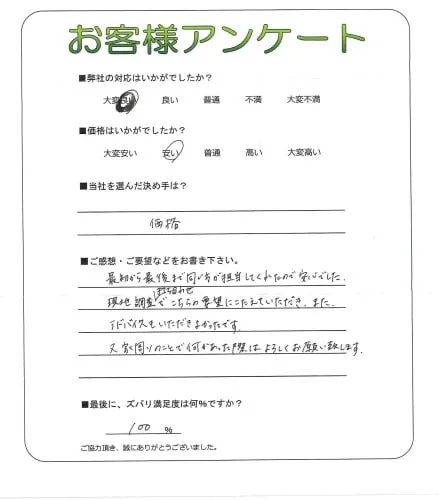 お客様アンケート
■弊社の対応はいかがでしたか?
大変良い 良い 普通 不満 大変不満
■価格はいかがでしたか?
大変安い 安い 普通 高い 大変高い
■当社を選んだ決め手は?
価格
■ご感想・ご要望などをお書き下さい。
最初から最後まで同じ方が担当してくれたので安心でした。
打ち合わせ
現地調査でこちらの要望にこたえていただき、また、
アドバイスもいただきよかったです。
又家周りのことで何かあった際はよろしくお願い致します。
■最後に、ズバリ満足度は何%ですか?
100 %
ご協力頂き、誠にありがとうございました。